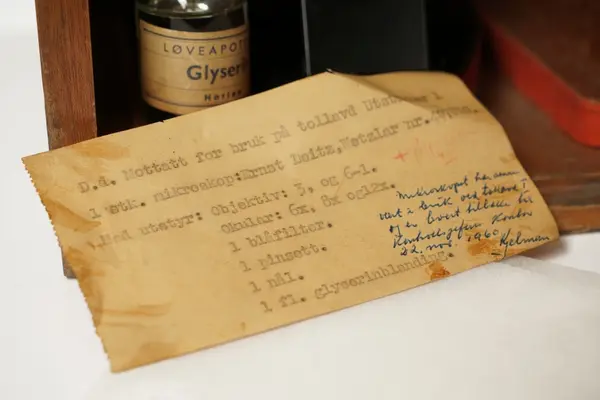 LØVEAPOT
Glyseri
Horten
D.d. Mottatt for bruk på tollavd
1 stk. mikroskop: Ernst Leitz, Wetzlar nr.
Med utstyr: Objektiv: 3, og 6-1.
Okular: 6x, 8x og12x.
1 blåfilter.
1 pinsett.
1 nål.
1 fl. glyserinblanding.
Mikroskopet har
vært i bruk ved tollavd I
og er levert tilbake til
Kontrollsjefens Kontor
22. nov. 1960